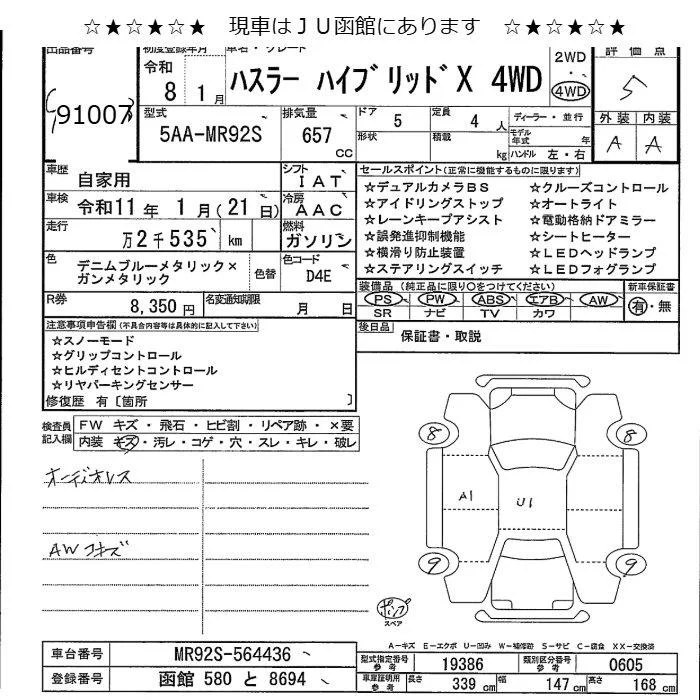 ☆★☆★☆★ 現車はＪＵ函館にあります ☆★☆★☆★
出品番号 初度登録年月 車名・グレード 2WD・4WD 評価点
91007 令和 8 1月 ハスラー ハイブリッドX 4WD 5
型式 5AA-MR92S 排気量 657 CC ドア 5 定員 4人 ディーラー・並行 外装 内装
形状 積載 kg モデル年式 年 ハンドル 左・右 A A
車歴 自家用 シフト IAT セールスポイント(正常に機能するものに限ります)
車検 令和11年 1月(21日) 冷房 AAC
走行 万2千535 km 燃料 ガソリン
☆デュアルカメラBS ☆クルーズコントロール
☆アイドリングストップ ☆オートライト
☆レーンキープアシスト ☆電動格納ドアミラー
☆誤発進抑制機能 ☆シートヒーター
☆横滑り防止装置 ☆LEDヘッドランプ
☆ステアリングスイッチ ☆LEDフォグランプ
色 デニムブルーメタリック×ガンメタリック 色替 色コード D4E
装備品 (純正品に限り○をつけてください) 新車保証書
PS PW ABS エアB AW 有・無
SR ナビ TV カワ
R券 8,350円 名変通知期限 月 日
後日品 保証書・取説
注意事項申告欄(不具合内容等は具体的に記入して下さい)
☆スノーモード
☆グリップコントロール
☆ヒルディセントコントロール
☆リヤパーキングセンサー
修復歴 有〔箇所 〕
検査員記入欄 FW キズ・飛石・ヒビ割・リペア跡・×要
内装 キズ・汚レ・コゲ・穴・スレ・キレ・破レ
オーディオレス
AWコキズ
8 8
A1 U1
9 9
ポンプ
スペア
A－キズ E－エクボ U－凹み W－補修跡 S－サビ C－腐食 XX－交換済
車台番号 MR92S-564436 型式指定番号 参考 19386 類別区分番号 参考 0605
登録番号 函館 580 と 8694 車庫証明用 参考 長さ 339 cm 幅 147 cm 高さ 168 cm